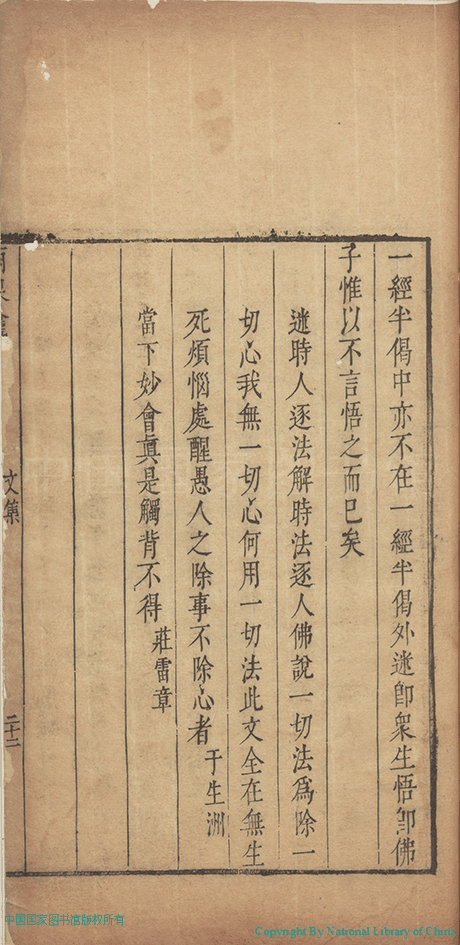 一經半偈中亦不在一經半偈外迷卽衆生悟卽佛
子惟以不言悟之而已矣
迷時人逐法解時法逐人佛說一切法爲除一
切心我無一切心何用一切法此文全在無生
死煩惱處醒愚人之除事不除心者 于生洲
當下妙會眞是觸背不得 莊雷章
文集
二十二
中国国家图书馆版权所有
Copyright By National Library of China